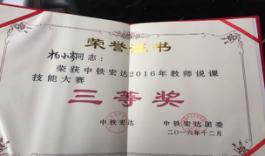 荣誉证书
同志:
荣获中铁宏达2016年教师说课
技能大赛
三等奖
中铁宏达 中铁宏达团委
二〇一六年十二月